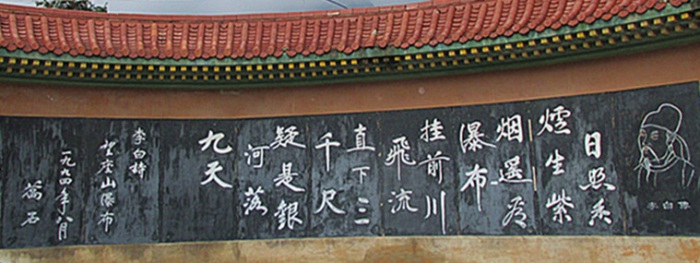 李白像
日照香
炉生紫
烟遥看
瀑布
挂前川
飛流
直下三
千尺
疑是銀
河落
九天
李白詩
望庐山瀑布
一九九四年八月